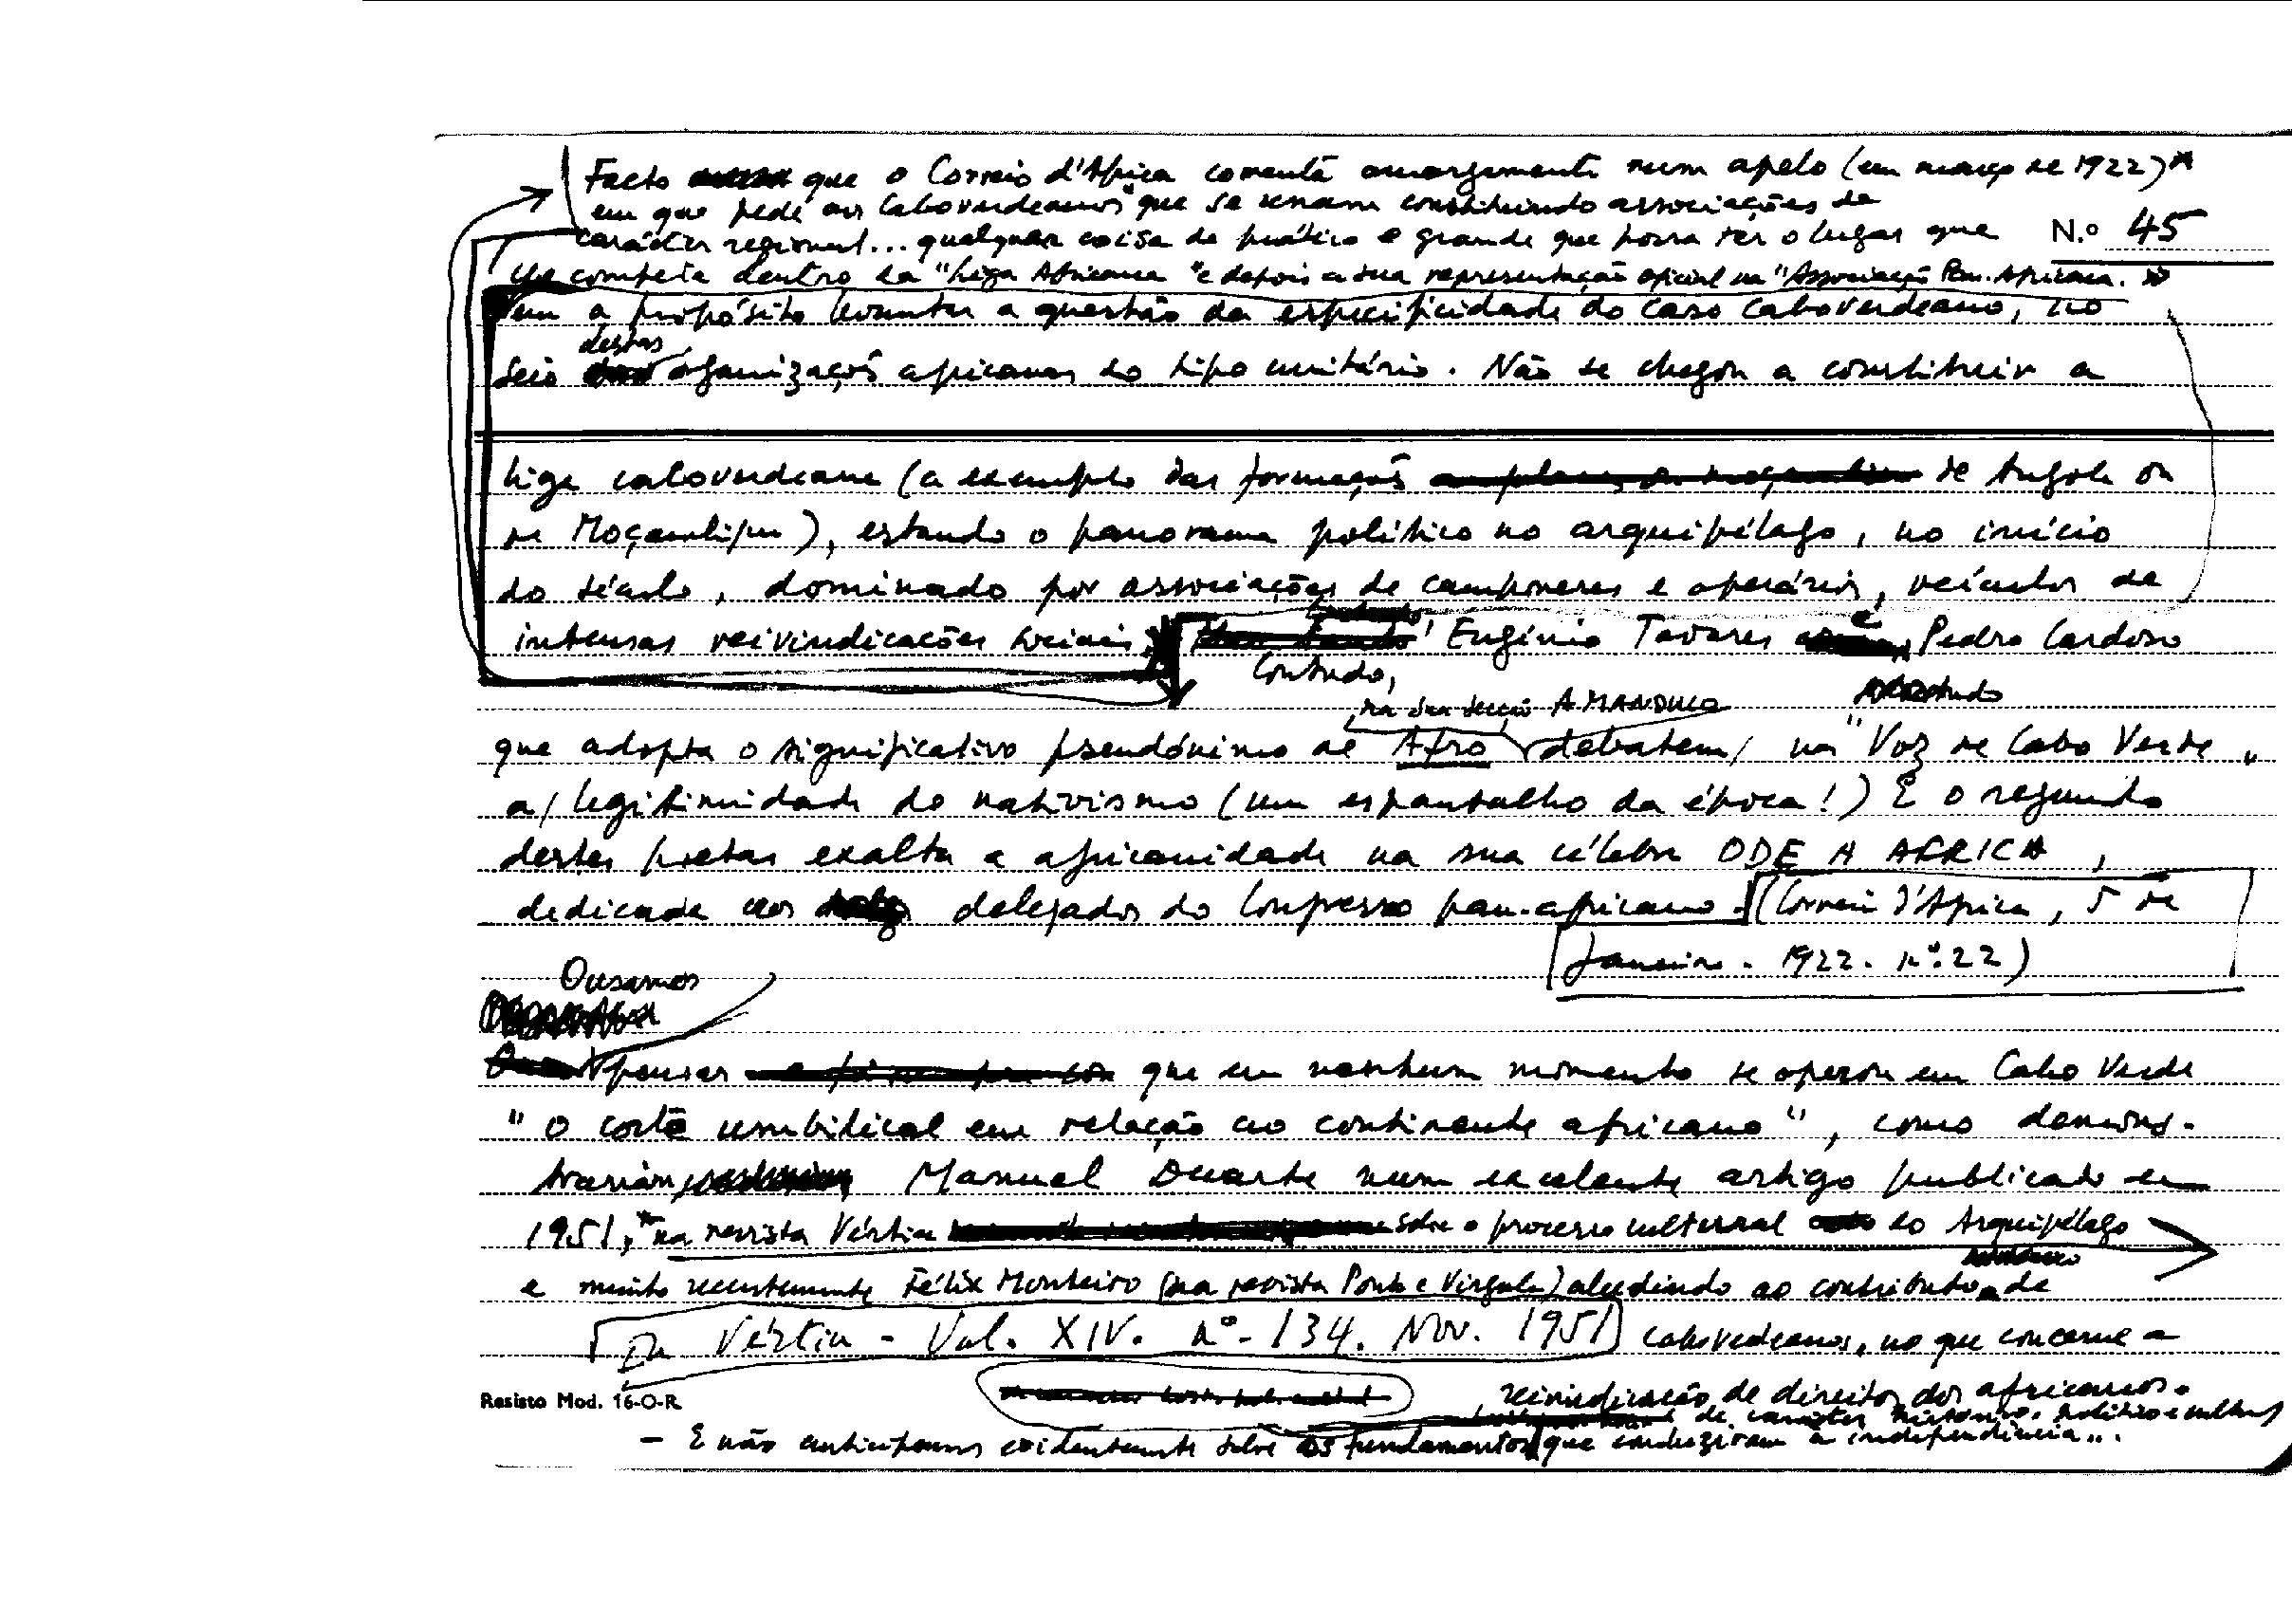 Facto que o Correio d'Africa comenta amargamente num apelo (em março de 1922)*
em que pede aos Caboverdeanos "que se reunam constituindo associações de
carácter regional... qualquer coisa de prático e grande que possa ter o lugar que
N.º 45
lhe competa dentro da "Liga Africana" e depois a sua representação oficial na "Associação Pan-Africana.
Vem a propósito levantar a questão da especificidade do caso caboverdeano, no
destas
seio organizações africanas do tipo unitário. Não se chegou a constituir a
liga caboverdeana (a exemplo das formações de Angola ou
de Moçambique), estando o panorama político no arquipélago, no início
do século, dominado por associações de camponeses e operários, veículos de
intensas reivindicações sociais. Eugénio Tavares e Pedro Cardoso
Contudo,
na sua secção A MANDUCO
que adopta o significativo pseudónimo de Afro debatem, na "Voz de Cabo Verde"
a/ legitimidade do nativismo (um espantalho da época!) E o segundo
destes poetas exalta a africanidade na sua célebre ODE A AFRICA,
dedicada aos delegados do Congresso pan-africano. (Correio d'Africa, 5 de
Janeiro. 1922. nº.22)
Ousamos
pensar que em nenhum momento se operou em Cabo Verde
"o corte umbilical em relação ao continente africano", como demons-
traram, Manuel Duarte num excelente artigo publicado em
1951,* na revista Vértice sobre o processo cultural do Arquipélago
e muito recentemente Félix Monteiro (na revista Ponto e Vírgula) aludindo ao contributo de
In Vértice - Vol. XIV. nº- 134. Nov. 1951 caboverdeanos, no que concerne a
Resisto Mod. 16-O-R.
reivindicação de direitos dos africanos.
de carácter histórico, político e cultural
- E não anticipamos evidentemente sobre os fundamentos que conduziram à independência...